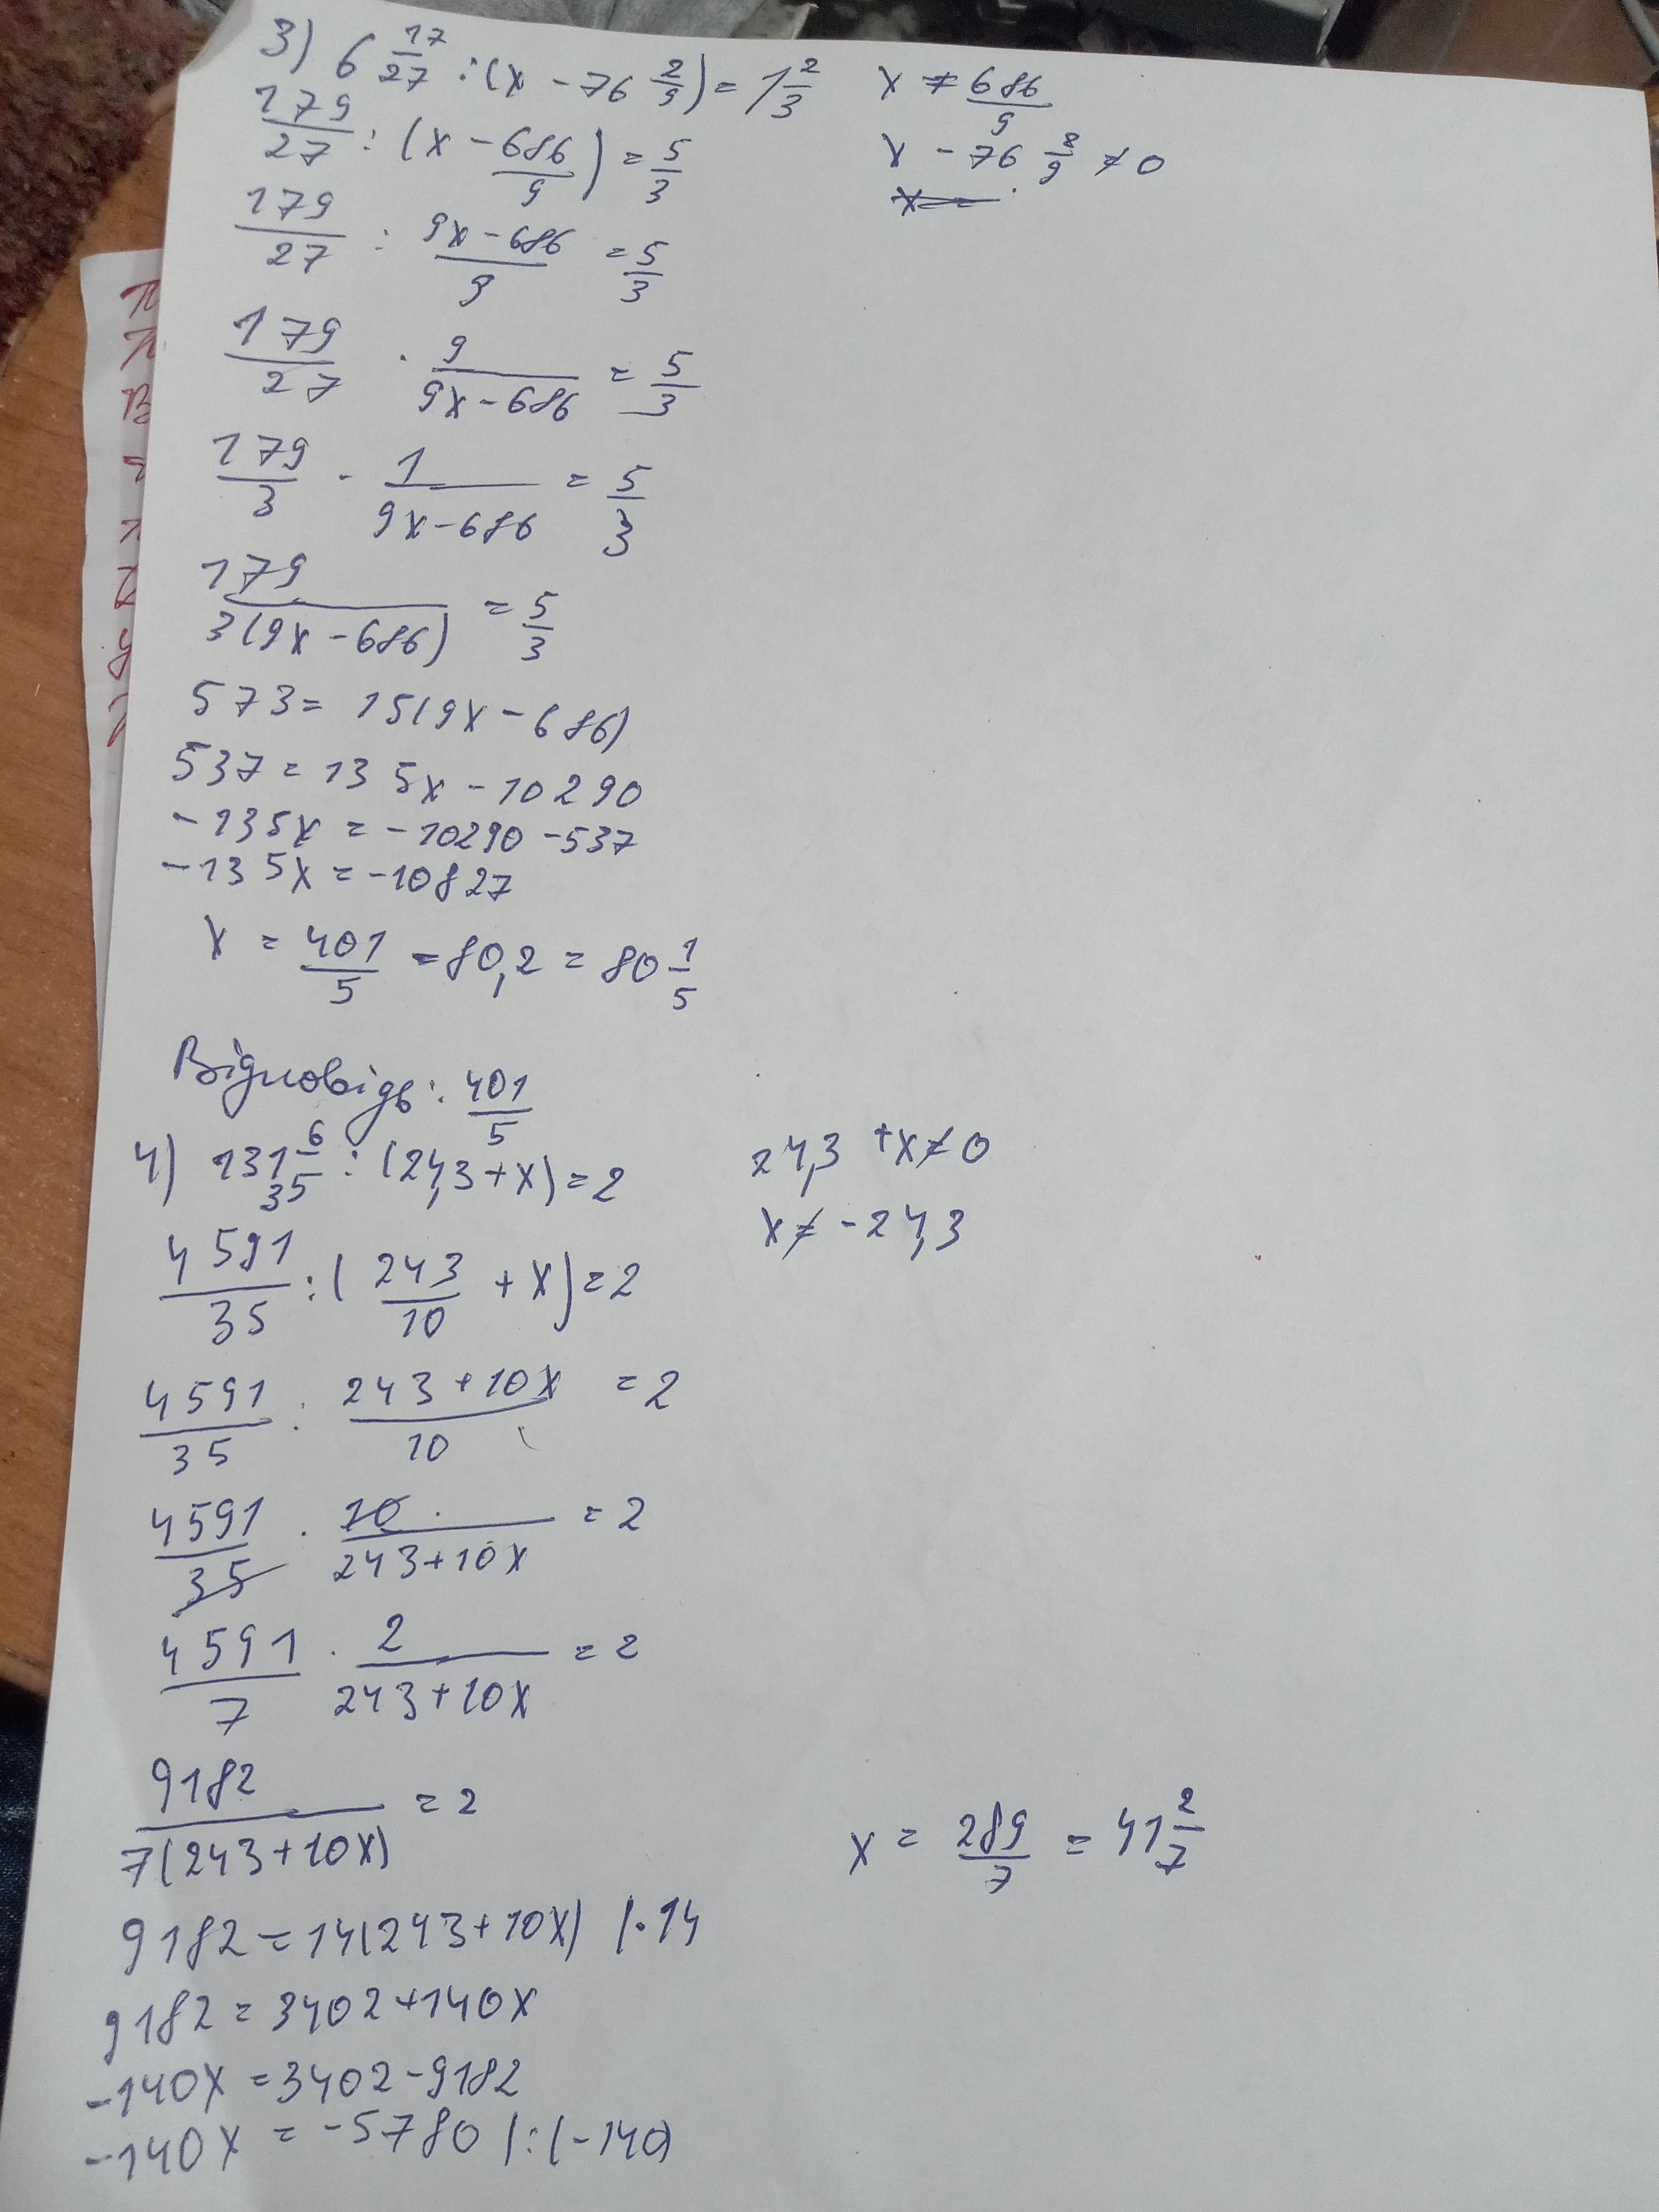 3) 6 17/27 : (x - 76 2/9) = 1 2/3
x ≠ 686/9
179/27 : (x - 686/9) = 5/3
x - 76 2/9 ≠ 0
179/27 : (9x - 686)/9 = 5/3
179/27 · 9/(9x - 686) = 5/3
179/3 · 1/(9x - 686) = 5/3
179/(3(9x - 686)) = 5/3
573 = 15(9x - 686)
537 = 135x - 10290
-135x = -10290 - 537
-135x = -10827
x = 401/5 = 80,2 = 80 1/5
Відповідь: 401/5
4) 131 6/35 : (24,3 + x) = 2
24,3 + x ≠ 0
x ≠ -24,3
4591/35 : (243/10 + x) = 2
4591/35 : (243 + 10x)/10 = 2
4591/35 · 10/(243 + 10x) = 2
4591/7 · 2/(243 + 10x) = 2
9182/(7(243 + 10x)) = 2
9182 = 14(243 + 10x) |·14
9182 = 3402 + 140x
-140x = 3402 - 9182
-140x = -5780 |:(-140)
x = 289/7 = 41 2/7